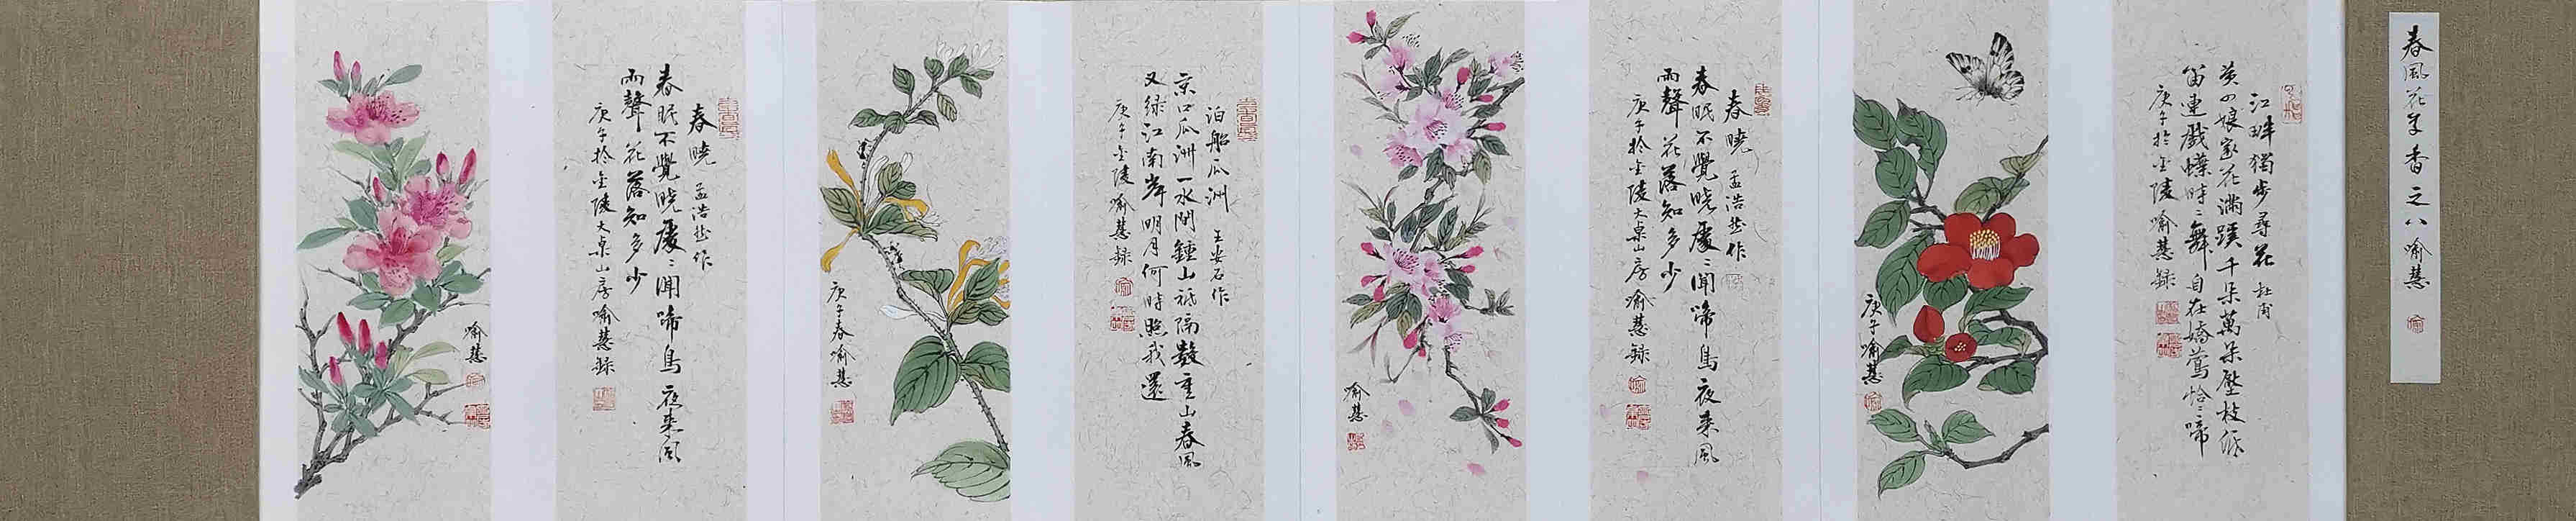 春風花草香之八 喻慧
江畔獨步尋花 杜甫
黄四娘家花滿蹊千朵萬朵壓枝低
留連戲蝶時〻舞自在嬌鶯恰〻啼
庚子於金陵喻慧録
庚子喻慧
春曉 孟浩然作
春眠不覺曉處〻聞啼鳥夜来風
雨聲花落知多少
庚子於金陵大桌山房喻慧録
喻慧
泊船瓜洲 王安石作
京口瓜洲一水間鍾山祗隔數重山春風
又绿江南岸明月何時照我還
庚子金陵喻慧録
庚子春喻慧
春曉 孟浩然作
春眠不覺曉處〻聞啼鳥夜来風
雨聲花落知多少
庚子於金陵大桌山房喻慧録
喻慧